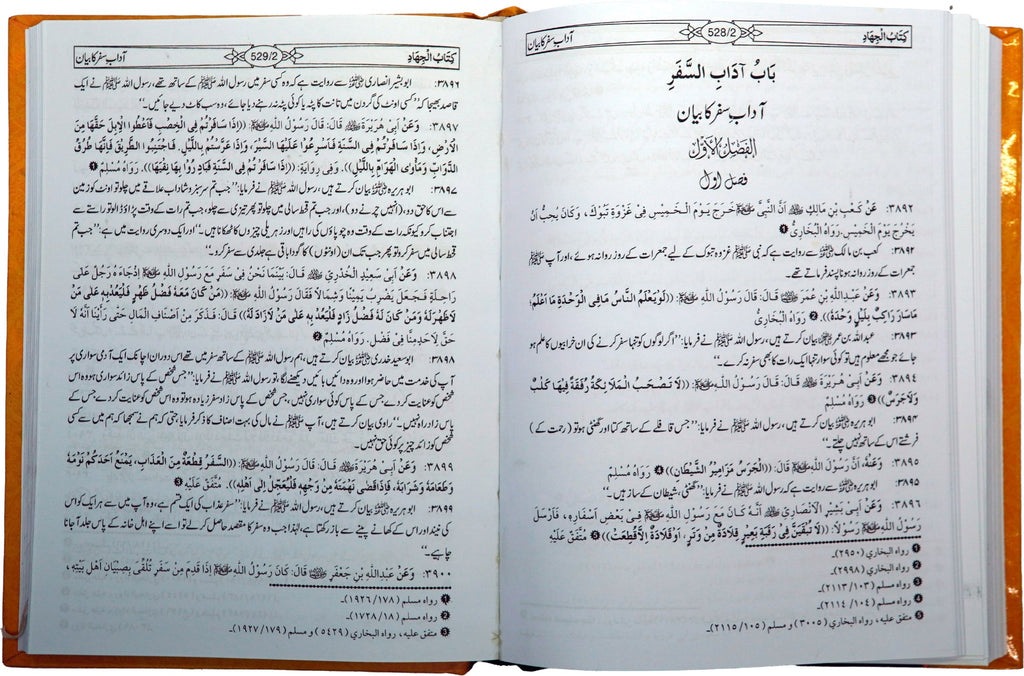 كِتَابُ الْجِهَادِ
528/2
آداب سفر کا بیان
بَابُ آدَابِ السَّفَرِ
آداب سفر کا بیان
الفَصْلُ الأوَّلُ
فصل اول
٣٨٩٢: عَنْ كَعْبِ بْنِ مَالِكٍ ؓ أَنَّ النَّبِيَّ ﷺ خَرَجَ يَوْمَ الْخَمِيْسِ فِي غَزْوَةِ تَبُوْكَ، وَكَانَ يُحِبُّ أَنْ
يَخْرُجَ يَوْمَ الْخَمِيْسِ. رَوَاهُ الْبُخَارِيُّ ❶
۳۸۹۲: کعب بن مالک ؓ سے روایت ہے کہ نبی ﷺ غزوہ تبوک کے لیے جمعرات کے روز روانہ ہوئے، اور آپ ﷺ
جمعرات کے روز روانہ ہونا پسند فرماتے تھے۔
٣٨٩٣: وَعَنْ عَبْدِ اللّٰهِ بْنِ عُمَرَ ؓ قَالَ: قَالَ رَسُوْلُ اللّٰهِ ﷺ: ((لَوْ يَعْلَمُ النَّاسُ مَا فِي الْوَحْدَةِ مَا أَعْلَمُ؛
مَا سَارَ رَاكِبٌ بِلَيْلٍ وَحْدَهُ)). ❷ رَوَاهُ الْبُخَارِيُّ
۳۸۹۳: عبداللہ بن عمر ؓ بیان کرتے ہیں، رسول اللہ ﷺ نے فرمایا: ’’اگر لوگوں کو تنہا سفر کرنے کی ان خرابیوں کا علم ہو
جائے جو مجھے معلوم ہیں تو کوئی سوار تنہا ایک رات کا بھی سفر نہ کرے۔‘‘
٣٨٩٤: وَعَنْ أَبِيْ هُرَيْرَةَ ؓ قَالَ: قَالَ رَسُوْلُ اللّٰهِ ﷺ: ((لَا تَصْحَبُ الْمَلَائِكَةُ رُفْقَةً فِيْهَا كَلْبٌ
وَلَا جَرَسٌ)) ❸ رَوَاهُ مُسْلِمٌ
۳۸۹۴: ابو ہریرہ ؓ بیان کرتے ہیں، رسول اللہ ﷺ نے فرمایا: ’’جس قافلے کے ساتھ کتا اور گھنٹی ہو تو (رحمت کے)
فرشتے اس کے ساتھ نہیں چلتے۔‘‘
٣٨٩٥: وَعَنْهُ، أَنَّ رَسُوْلَ اللّٰهِ ﷺ قَالَ: ((الْجَرَسُ مَزَامِيْرُ الشَّيْطَانِ)) ❹ رَوَاهُ مُسْلِمٌ
۳۸۹۵: ابو ہریرہ ؓ سے روایت ہے کہ رسول اللہ ﷺ نے فرمایا: ’’گھنٹی، شیطان کے ساز ہیں۔‘‘
٣٨٩٦: وَعَنْ أَبِيْ بَشِيْرٍ الْأَنْصَارِيِّ ؓ أَنَّهُ كَانَ مَعَ رَسُوْلِ اللّٰهِ ﷺ فِيْ بَعْضِ أَسْفَارِهِ، فَأَرْسَلَ
رَسُوْلُ اللّٰهِ ﷺ رَسُوْلًا: ((لَا تُبْقَيَنَّ فِيْ رَقَبَةِ بَعِيْرٍ قِلَادَةٌ مِنْ وَتَرٍ، أَوْ قِلَادَةٌ إِلَّا قُطِعَتْ)) ❺ مُتَّفَقٌ عَلَيْهِ
❶ رواه البخاري (٢٩٥٠)۔
❷ رواه البخاري (٢٩٩٨)۔
❸ رواه مسلم (١٠٣/٢١١٣)۔
❹ رواه مسلم (١٠٤/ ٢١١٤)۔
❺ متفق عليه، رواه البخاري (٣٠٠٥) و مسلم (١٠٥/ ٢١١٥)۔
كِتَابُ الْجِهَادِ
529/2
آداب سفر کا بیان
۳۸۹۶: ابو بشیر انصاری ؓ سے روایت ہے کہ وہ کسی سفر میں رسول اللہ ﷺ کے ساتھ تھے، رسول اللہ ﷺ نے ایک
قاصد بھیجا کہ ’’کسی اونٹ کی گردن میں تانت کا پٹہ یا کوئی پٹہ نہ رہنے دیا جائے، وہ سب کاٹ دیے جائیں۔‘‘
٣٨٩٧: وَعَنْ أَبِيْ هُرَيْرَةَ ؓ قَالَ: قَالَ رَسُوْلُ اللّٰهِ ﷺ: ((إِذَا سَافَرْتُمْ فِي الْخِصْبِ فَأَعْطُوا الْإِبِلَ حَقَّهَا مِنَ
الْأَرْضِ، وَإِذَا سَافَرْتُمْ فِي السَّنَةِ فَأَسْرِعُوْا عَلَيْهَا السَّيْرَ، وَإِذَا عَرَّسْتُمْ بِاللَّيْلِ، فَاجْتَنِبُوا الطَّرِيْقَ فَإِنَّهَا طُرُقُ
الدَّوَابِّ وَمَأْوَى الْهَوَامِّ بِاللَّيْلِ)). وَفِيْ رِوَايَةٍ: ((إِذَا سَافَرْتُمْ فِي السَّنَةِ فَبَادِرُوْا بِهَا نِقْيَهَا)). رَوَاهُ مُسْلِمٌ ❶
۳۸۹۷: ابو ہریرہ ؓ بیان کرتے ہیں، رسول اللہ ﷺ نے فرمایا: ’’جب تم سرسبز و شاداب علاقے میں چلو تو اونٹ کو زمین
سے اس کا حق دو، (انہیں چرنے دو)، اور جب تم قحط سالی میں چلو تو پھر تیزی سے چلو، جب تم رات کے وقت پڑاؤ ڈالو تو راستے سے
اجتناب کرو کیونکہ رات کے وقت وہ چوپاؤں کی راہیں اور زہریلی چیزوں کا ٹھکانا ہیں۔‘‘ اور ایک دوسری روایت میں ہے: ’’جب تم
قحط سالی میں سفر کرو تو پھر جب تک ان (اونٹوں) کا گودا باقی ہے جلدی سے سفر کرو۔‘‘
٣٨٩٨: وَعَنْ أَبِيْ سَعِيْدٍ الْخُدْرِيِّ ؓ قَالَ: بَيْنَمَا نَحْنُ فِيْ سَفَرٍ مَعَ رَسُوْلِ اللّٰهِ ﷺ إِذْ جَاءَهُ رَجُلٌ عَلَى
رَاحِلَةٍ فَجَعَلَ يَضْرِبُ يَمِيْنًا وَشِمَالًا فَقَالَ رَسُوْلُ اللّٰهِ ﷺ: ((مَنْ كَانَ مَعَهُ فَضْلُ ظَهْرٍ فَلْيَعُدْ بِهِ عَلَى مَنْ
لَا ظَهْرَ لَهُ وَمَنْ كَانَ لَهُ فَضْلُ زَادٍ فَلْيَعُدْ بِهِ عَلَى مَنْ لَا زَادَ لَهُ)) قَالَ: فَذَكَرَ مِنْ أَصْنَافِ الْمَالِ حَتَّى رَأَيْنَا أَنَّهُ لَا
حَقَّ لِأَحَدٍ مِنَّا فِيْ فَضْلٍ. رَوَاهُ مُسْلِمٌ ❷
۳۸۹۸: ابو سعید خدری ؓ بیان کرتے ہیں، ہم رسول اللہ ﷺ کے ساتھ سفر میں تھے اس دوران اچانک ایک آدمی سواری پر
آپ کی خدمت میں حاضر ہوا اور وہ دائیں بائیں دیکھنے لگا، تو رسول اللہ ﷺ نے فرمایا: ’’جس شخص کے پاس زائد سواری ہو وہ اس
شخص کو عنایت کر دے جس کے پاس کوئی سواری نہیں، جس شخص کے پاس زاد سفر زیادہ ہو تو وہ اس شخص کو عنایت کر دے جس کے
پاس زاد راہ نہیں۔‘‘ راوی بیان کرتے ہیں، آپ ﷺ نے مال کی بہت اصناف کا ذکر فرمایا حتی کہ ہم نے سمجھا کہ ہم میں سے کسی
شخص کو زائد چیز پر کوئی حق نہیں۔
٣٨٩٩: وَعَنْ أَبِيْ هُرَيْرَةَ ؓ قَالَ: قَالَ رَسُوْلُ اللّٰهِ ﷺ: ((السَّفَرُ قِطْعَةٌ مِنَ الْعَذَابِ، يَمْنَعُ أَحَدَكُمْ نَوْمَهُ
وَطَعَامَهُ وَشَرَابَهُ، فَإِذَا قَضَى نَهْمَتَهُ مِنْ وَجْهِهِ فَلْيَعْجَلْ إِلَى أَهْلِهِ)). مُتَّفَقٌ عَلَيْهِ ❸
۳۸۹۹: ابو ہریرہ ؓ بیان کرتے ہیں، رسول اللہ ﷺ نے فرمایا: ’’سفر عذاب کی ایک قسم ہے، وہ آپ میں سے ہر ایک کو اس
کی نیند اور اس کے کھانے پینے سے باز رکھتا ہے، لہٰذا جب وہ سفر کا مقصد حاصل کر لے تو اسے اپنے اہل خانہ کے پاس جلد آ جانا
چاہیے۔‘‘
٣٩٠٠: وَعَنْ عَبْدِ اللّٰهِ بْنِ جَعْفَرٍ ؓ قَالَ: كَانَ رَسُوْلُ اللّٰهِ ﷺ إِذَا قَدِمَ مِنْ سَفَرٍ تُلُقِّيَ بِصِبْيَانِ أَهْلِ بَيْتِهِ،
❶ رواه مسلم (١٧٨/ ١٩٢٦)۔
❷ رواه مسلم (١٨/ ١٧٢٨)۔
❸ متفق عليه، رواه البخاري (٥٤٢٩) و مسلم (١٧٩/ ١٩٢٧)۔